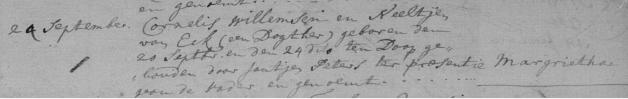 en genoemt
24 September. Cornelis Willemsen en Neeltjen
van Eck (een Dogther) geboren den
20 Septbr. en den 24 d.o ten Doop ge-
houden door Jantjen Peters ter presentie Margrietha
van de vader en genoemt